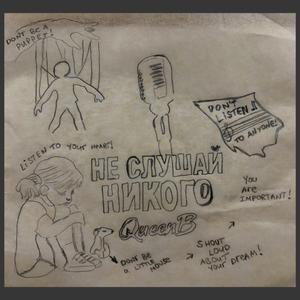 DON'T BE A
PUPPET!
DON'T
LISTEN
TO ANYONE!
LISTEN TO YOUR HEART!
НЕ СЛУШАЙ
НИКОГО
QueenB
YOU
ARE
IMPORTANT!
DON'T BE
A LITTLE
MOUSE
SHOUT
LOUD
ABOUT
YOUR DREAM!